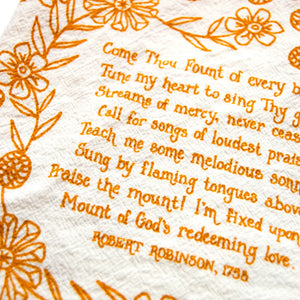 Come Thou Fount of every b
Tune my heart to sing Thy g
Streams of mercy, never ceas
Call for songs of loudest prai
Teach me some melodious sonn
Sung by flaming tongues abov
Praise the mount! I'm fixed upon
Mount of God's redeeming love.
ROBERT ROBINSON, 1758